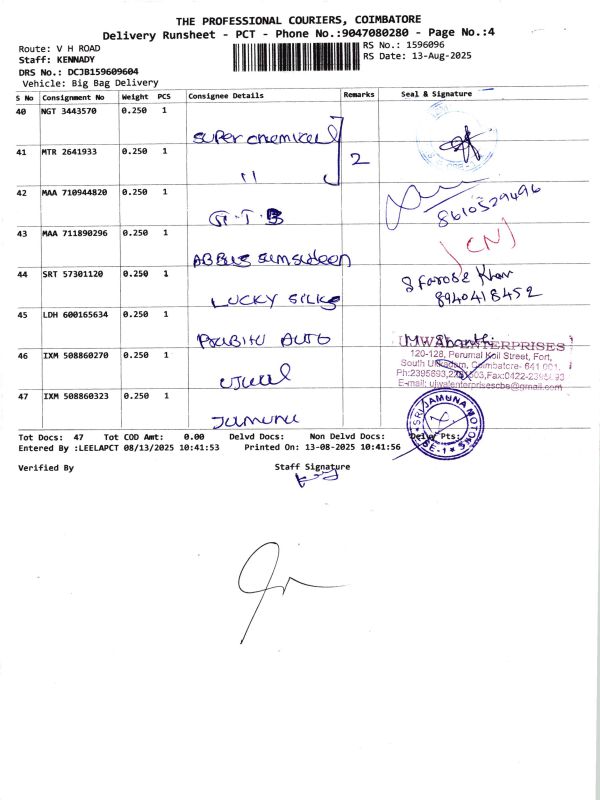 THE PROFESSIONAL COURIERS, COIMBATORE
Delivery Runsheet - PCT - Phone No.:9047080280 - Page No.:4
Route: V H ROAD
RS No.: 1596096
Staff: KENNADY
RS Date: 13-Aug-2025
DRS No.: DCJB159609604
Vehicle: Big Bag Delivery
S No Consignment No Weight PCS Consignee Details Remarks Seal & Signature
40 NGT 3443570 0.250 1
super chemical
41 MTR 2641933 0.250 1
2
11
42 MAA 710944820 0.250 1
G.T.B
8610529496
43 MAA 711890296 0.250 1
(CN)
ABBUS Sumsudeen
44 SRT 57301120 0.250 1
S Farose Khan
LUCKY SILKS
8940418452
45 LDH 600165634 0.250 1
PRABHU AUTO
UJWAL ENTERPRISES
46 IXM 508860270 0.250 1
120-128, Perumal Koil Street, Fort,
South Ukkadam, Coimbatore- 641 001.
ujwal
E-mail: ujwalenterprisescbe@gmail.com
47 IXM 508860323 0.250 1
SRI JAMUNA MOTORS
CBE-1
Jamuna
Tot Docs: 47 Tot COD Amt: 0.00 Delvd Docs: Non Delvd Docs: Delvd Pts:
Entered By :LEELAPCT 08/13/2025 10:41:53 Printed On: 13-08-2025 10:41:56
Verified By Staff Signature